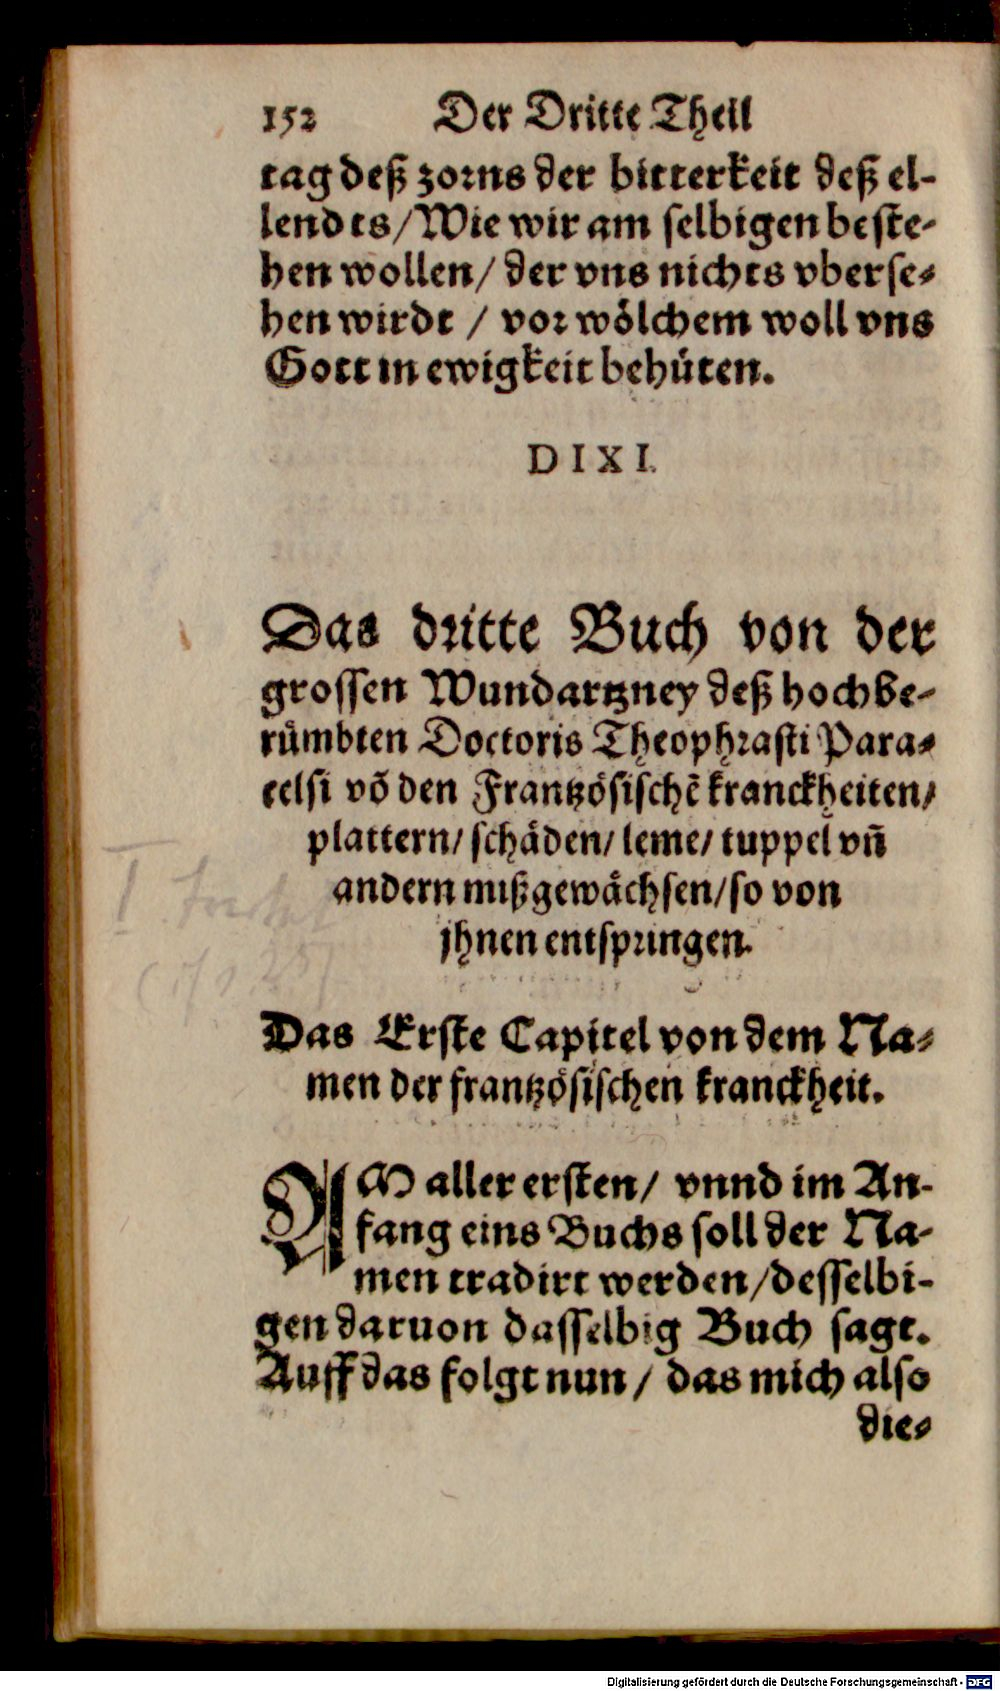 152 Der Dritte Theil
tag deß zorns der bitterkeit deß el-
lendts/Wie wir am selbigen beste-
hen wollen/ der vns nichts vberse-
hen wirdt / vor wölchem woll vns
Gott in ewigkeit behüten.
DIXI.
Das dritte Buch von der
grossen Wundartzney deß hochbe-
rümbten Doctoris Theophrasti Para-
celsi võ den Frantzösischẽ kranckheiten/
plattern/ schäden/ leme/ tuppel vñ
andern mißgewächsen/so von
jhnen entspringen.
Das Erste Capitel von dem Na-
men der frantzösischen kranckheit.
AM aller ersten/ vnnd im An-
fang eins Buchs soll der Na-
men tradirt werden/desselbi-
gen daruon dasselbig Buch sagt.
Auff das folgt nun/ das mich also
die-
Digitalisierung gefördert durch die Deutsche Forschungsgemeinschaft - DFG